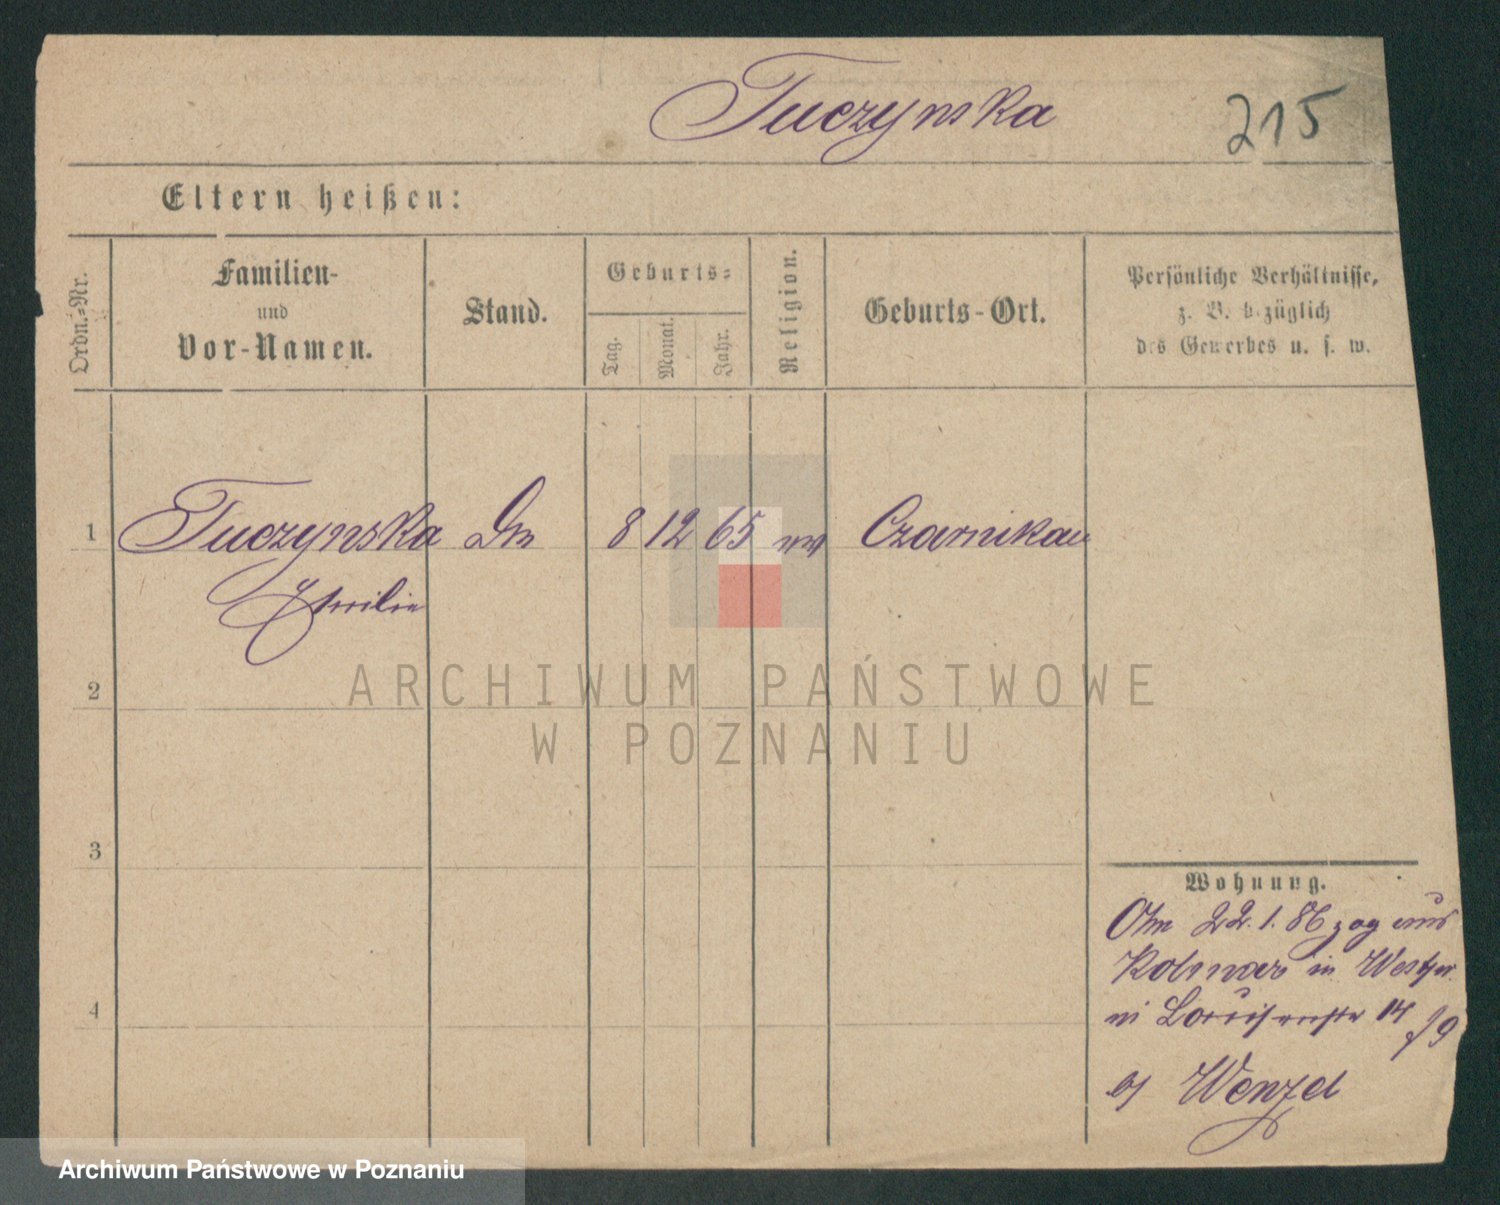 Tuczynska
215
Eltern heißen:
Ordn.-Nr.
Familien-
und
Vor-Namen.
Stand.
Geburts-
Tag.
Monat.
Jahr.
Religion.
Geburts-Ort.
Persönliche Verhältnisse,
z. B. bezüglich
des Gewerbes u. s. w.
1 Tuczynska 8 12 65 Czarnikau
Emilie
2
3
4
Wohnung.
22.1.86 zog aus
Kolmar in Westpr.
Louisenstr 14
b/ Wenzel
ARCHIWUM PAŃSTWOWE
W POZNANIU
Archiwum Państwowe w Poznaniu